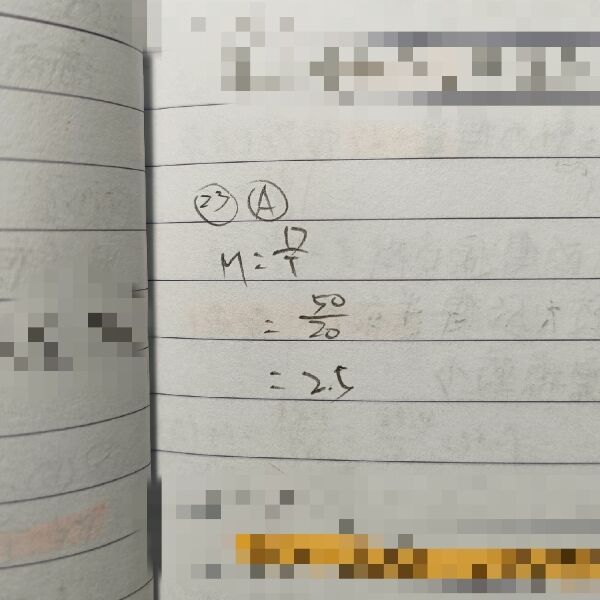 23 A
M = D/T
= 50/20
= 2.5